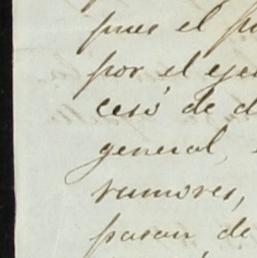 pues el
por el eje
cesó de d
general,
rumores,
pasan de